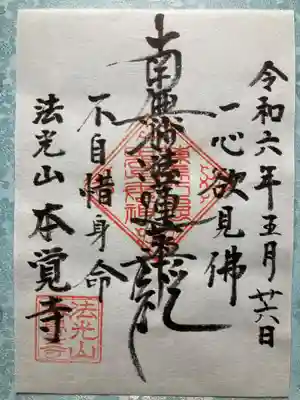 令和六年五月廿六日
一心欲見佛
南無妙法蓮華経
不自惜身命
法光山本覚寺
法光山